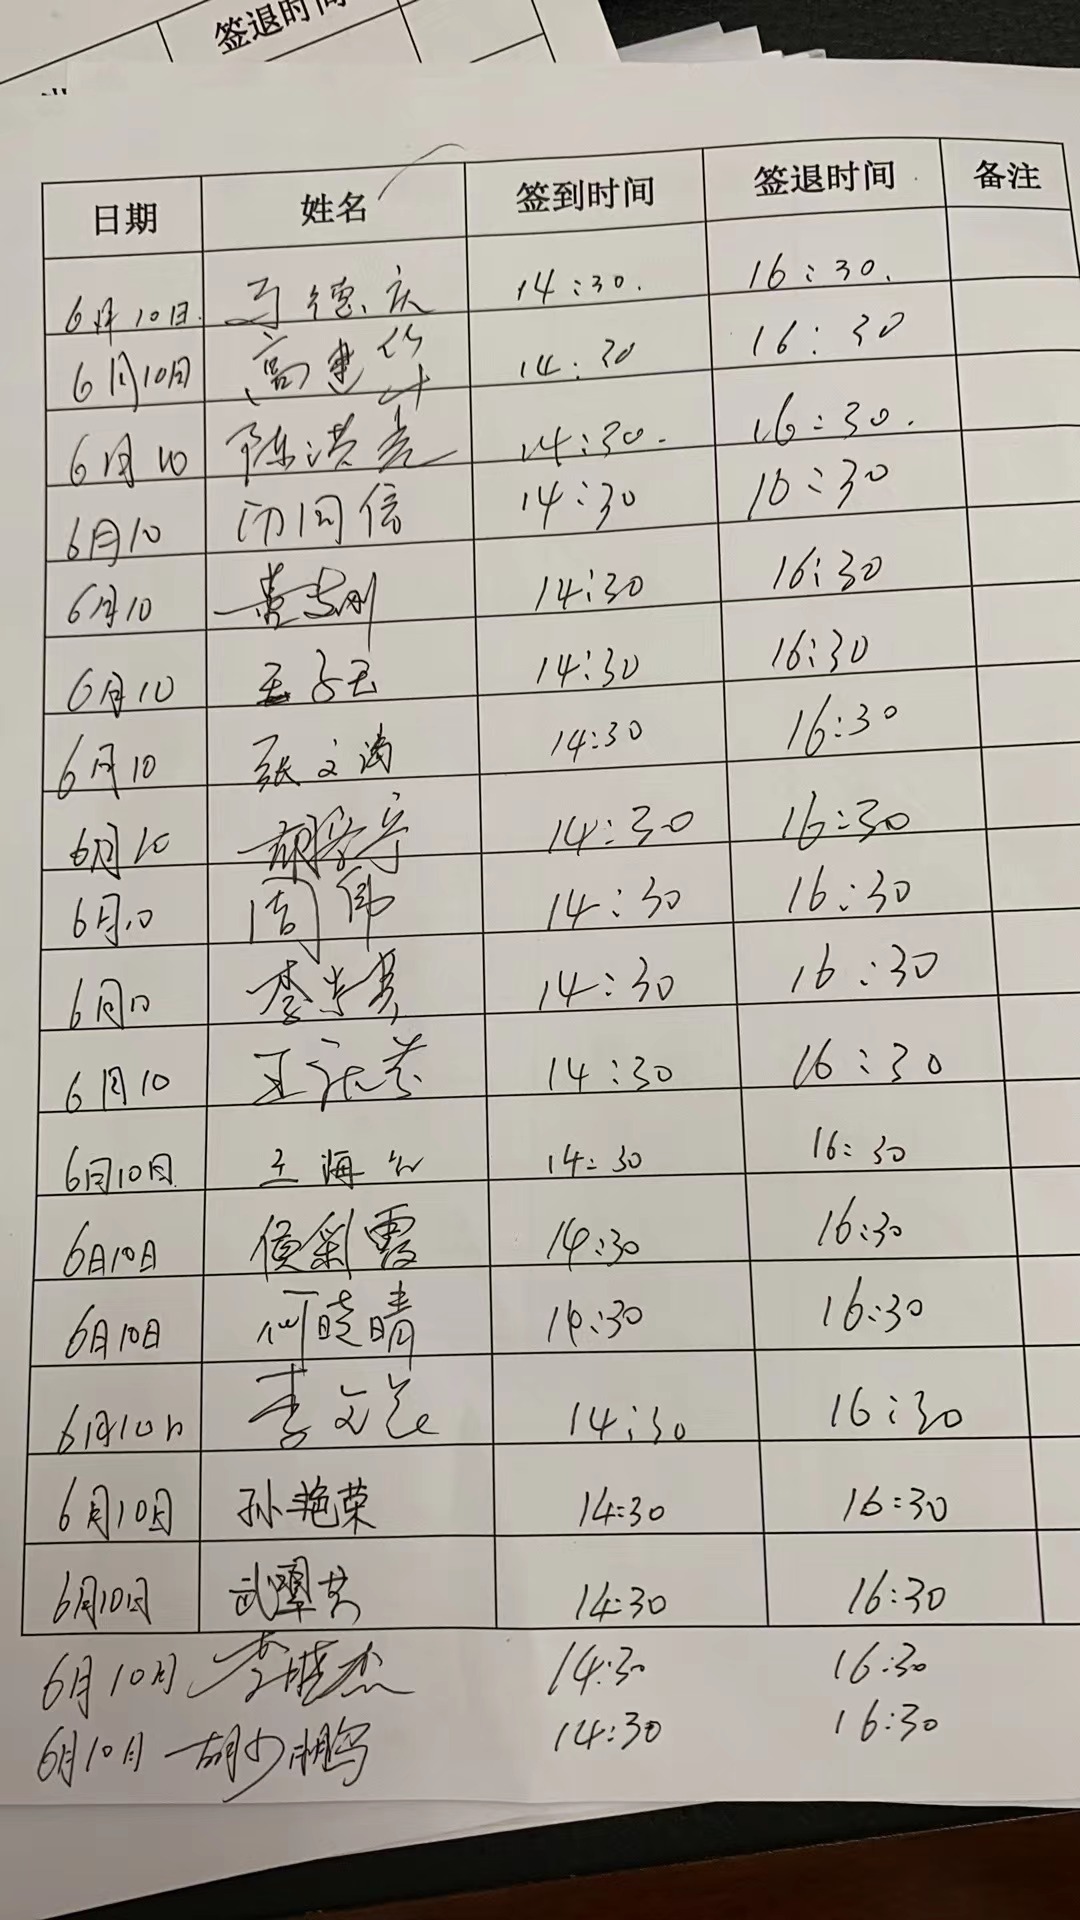 签退时间
日期 姓名 签到时间 签退时间 备注
6月10日. 马德庆 14:30. 16:30.
6月10日 高建华 14:30 16:30
6月10 陈洪亮 14:30. 16:30.
6月10 闭同信 14:30 16:30
6月10 黄志刚 14:30 16:30
6月10 王子玉 14:30 16:30
6月10 张文涛 14:30 16:30
6月10 胡学宇 14:30 16:30
6月10 周伟 14:30 16:30
6月10 李 14:30 16:30
6月10 王 14:30 16:30
6月10日 王海 14:30 16:30
6月10日 彩霞 14:30 16:30
6月10日 何晓晴 14:30 16:30
6月10日 李文 14:30 16:30
6月10日 孙艳荣 14:30 16:30
6月10日 武翠 14:30 16:30
6月10日 李晓杰 14:30 16:30
6月10日 胡少鹏 14:30 16:30